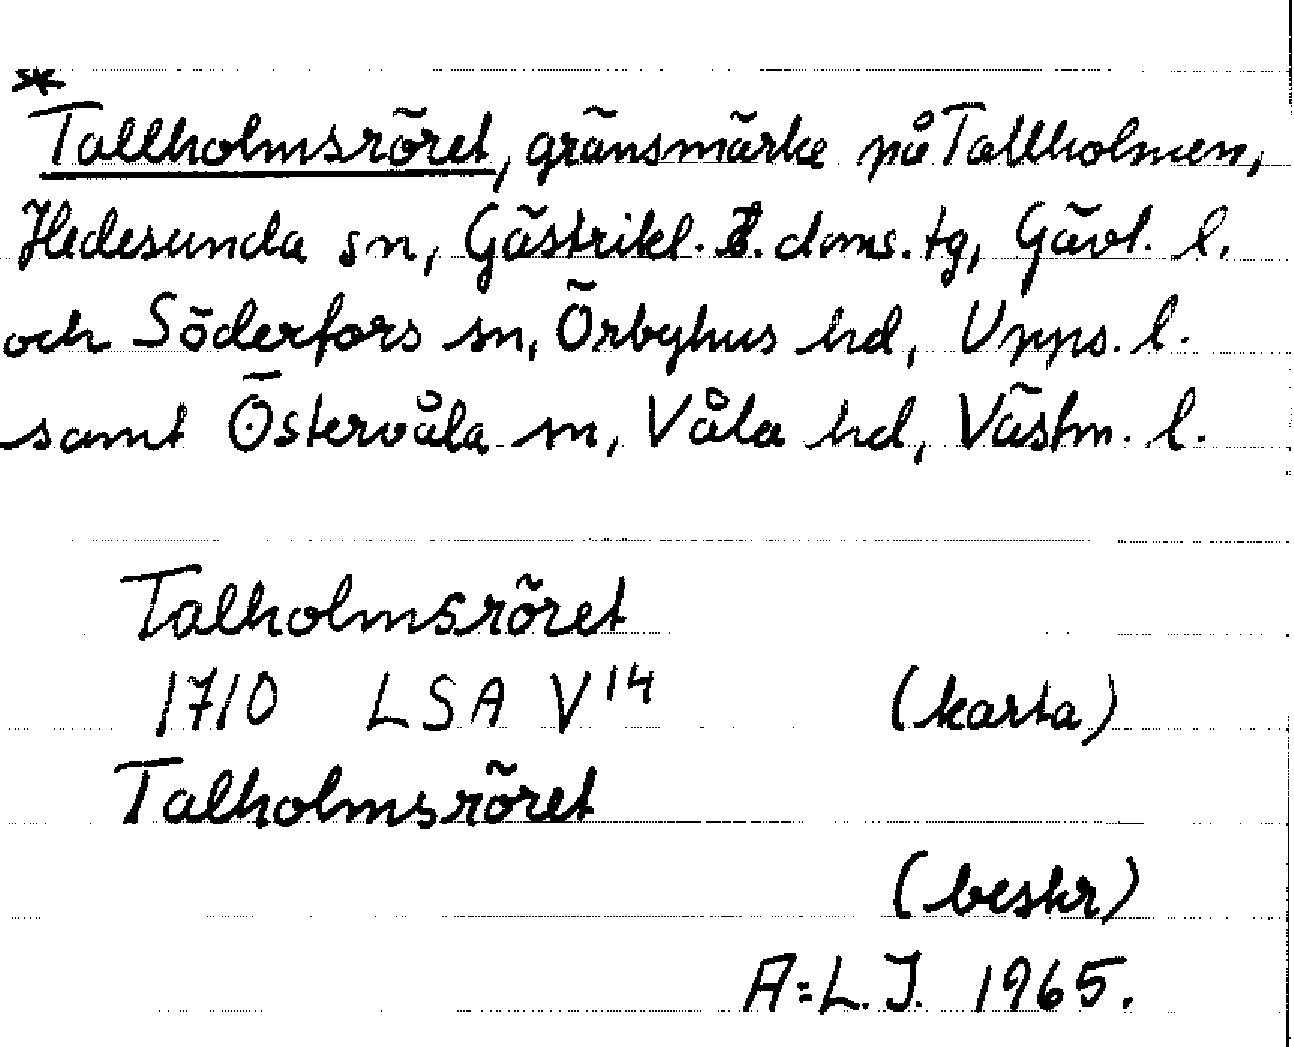 *
Tallholmsröret, gränsmärke på Tallholmen,
Hedesunda sn, Gästrikl. Ö. doms. tg, Gävl. l.
och Söderfors sn, Örbyhus hd, Upps. l.
samt Östervåla sn, Våla hd, Västm. l.
Talholmsröret
1710 LSA V14 (karta)
Talholmsröret
(beskr)
A=L.J. 1965.